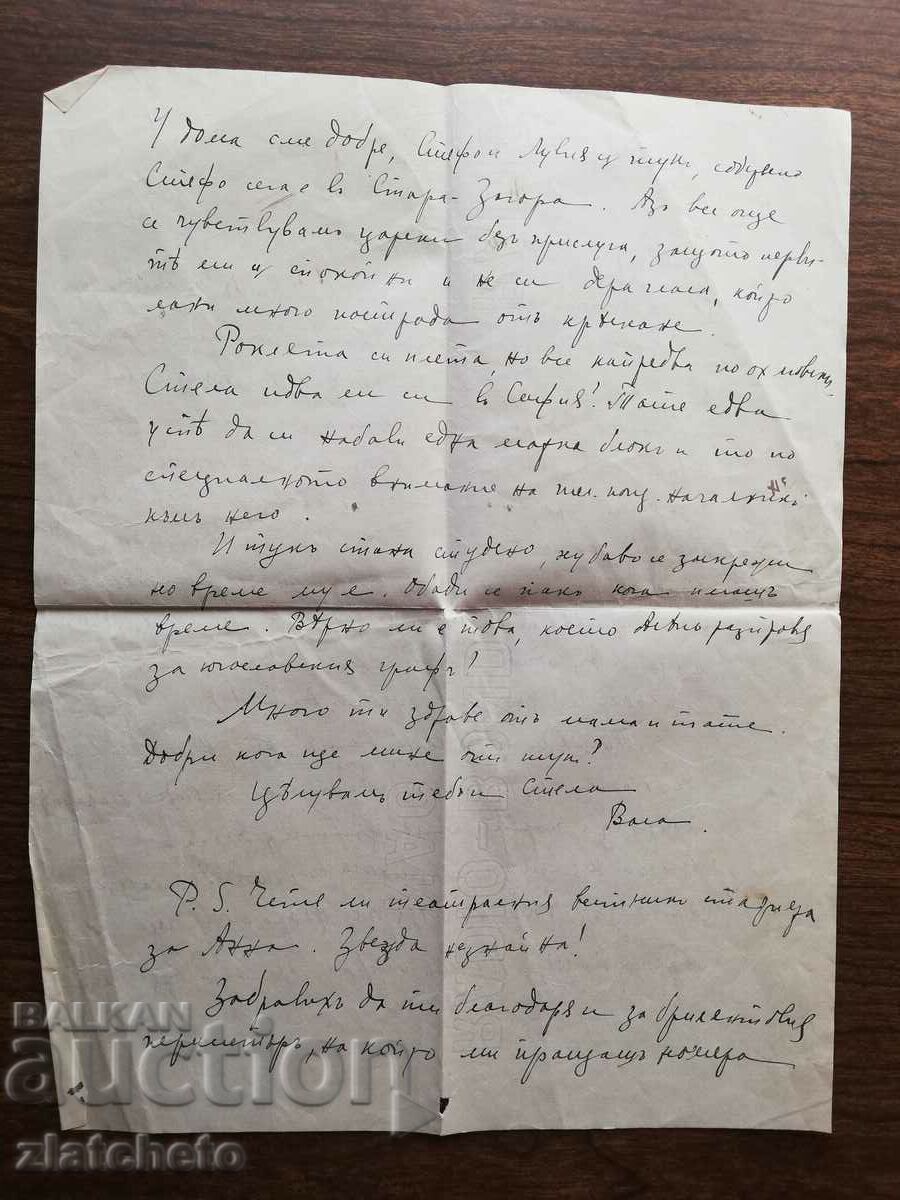 У дома сме добре, Стефо и тукъ,
Стефо сега е въ Стара-Загора. Азъ все още
се чувствувамъ царски безъ прислуга, защото нерви-
тѣ ми сѫ спокойни и не си дера гласа, който
много пострада отъ крѣскане.
Роклета си плета, но все напредва по
Стела идва ли си въ София! Тате едва
успѣ да си набави една блокъ и то по
специалното внимание на началникъ
къмъ него.
И тукъ стана студено, хубаво е
но време му е. Обади се пакъ кога имашъ
време. Вѣрно ли е това, което разправя
за югославския графъ?
Много ти здраве отъ мама и тате.
Добри кога ще мине отъ тукъ?
Цѣлувамъ тебъ и Стела
Вала.
P.S. Чете ли театралния вестникъ
за Анна. Звезда незнайна!
Забравихъ да ти благодаря и за
на който ми пращашъ номера
BALKAN
auction
zlatcheto